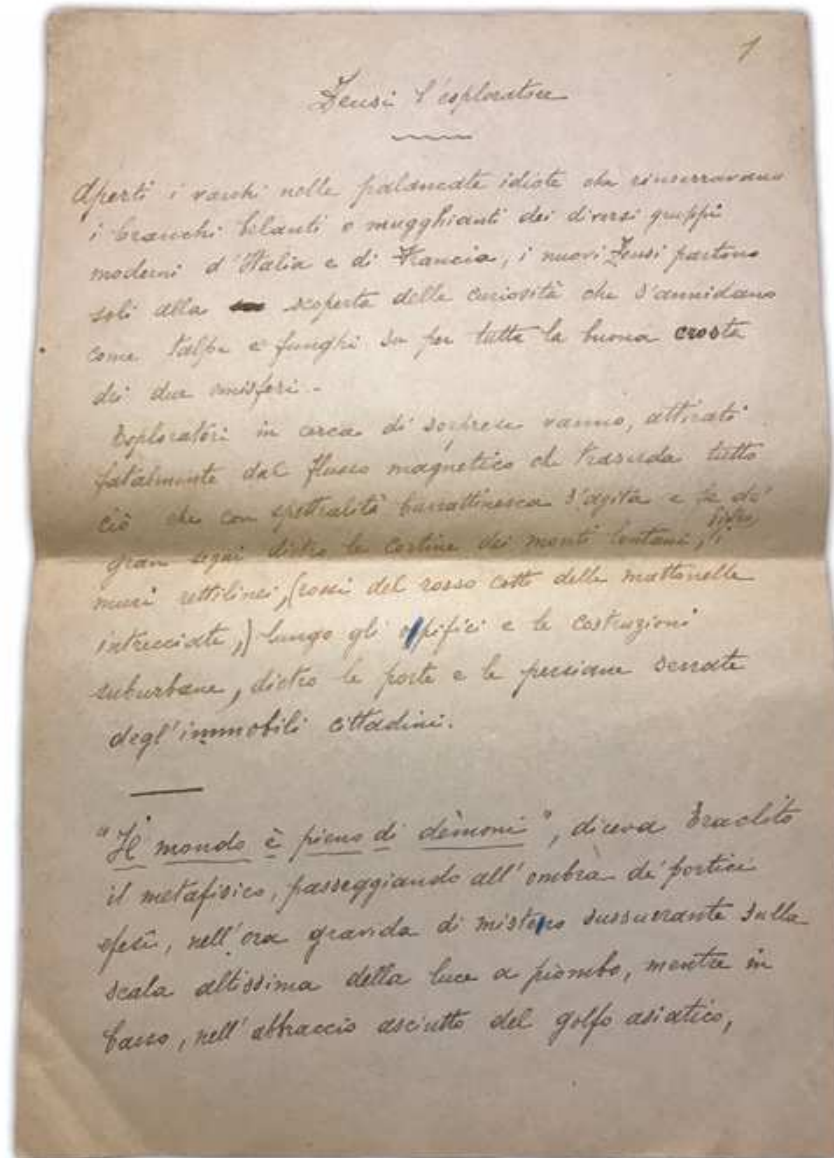 1
Zeusi l'esploratore
Aperti i varchi nelle palancate idiote che rinserravano
i branchi belanti e mugghianti dei diversi gruppi
moderni d'Italia e di Francia, i nuovi Zeusi partono
soli alla scoperta delle curiosità che s'annidano
come talpe e funghi su per tutta la buona crosta
dei due emisferi.
Esploratori in cerca di sorprese vanno, attirati
fatalmente dal flusso magnetico che trasuda tutto
ciò che con spettralità burattinesca s'agita e fa de'
gran segni dietro le cortine dei monti lontani, dietro i
muri rettilinei, (rossi del rosso cotto delle mattonelle
intrecciate,) lungo gli opifici e le costruzioni
suburbane, dietro le porte e le persiane serrate
degl'immobili cittadini.
"Il mondo è pieno di dèmoni", diceva Eraclito
il metafisico, passeggiando all'ombra de' portici
efesî, nell'ora gravida di mistero sussurrante sulla
scala altissima della luce a piombo, mentre in
basso, nell'abbraccio asciutto del golfo asiatico,